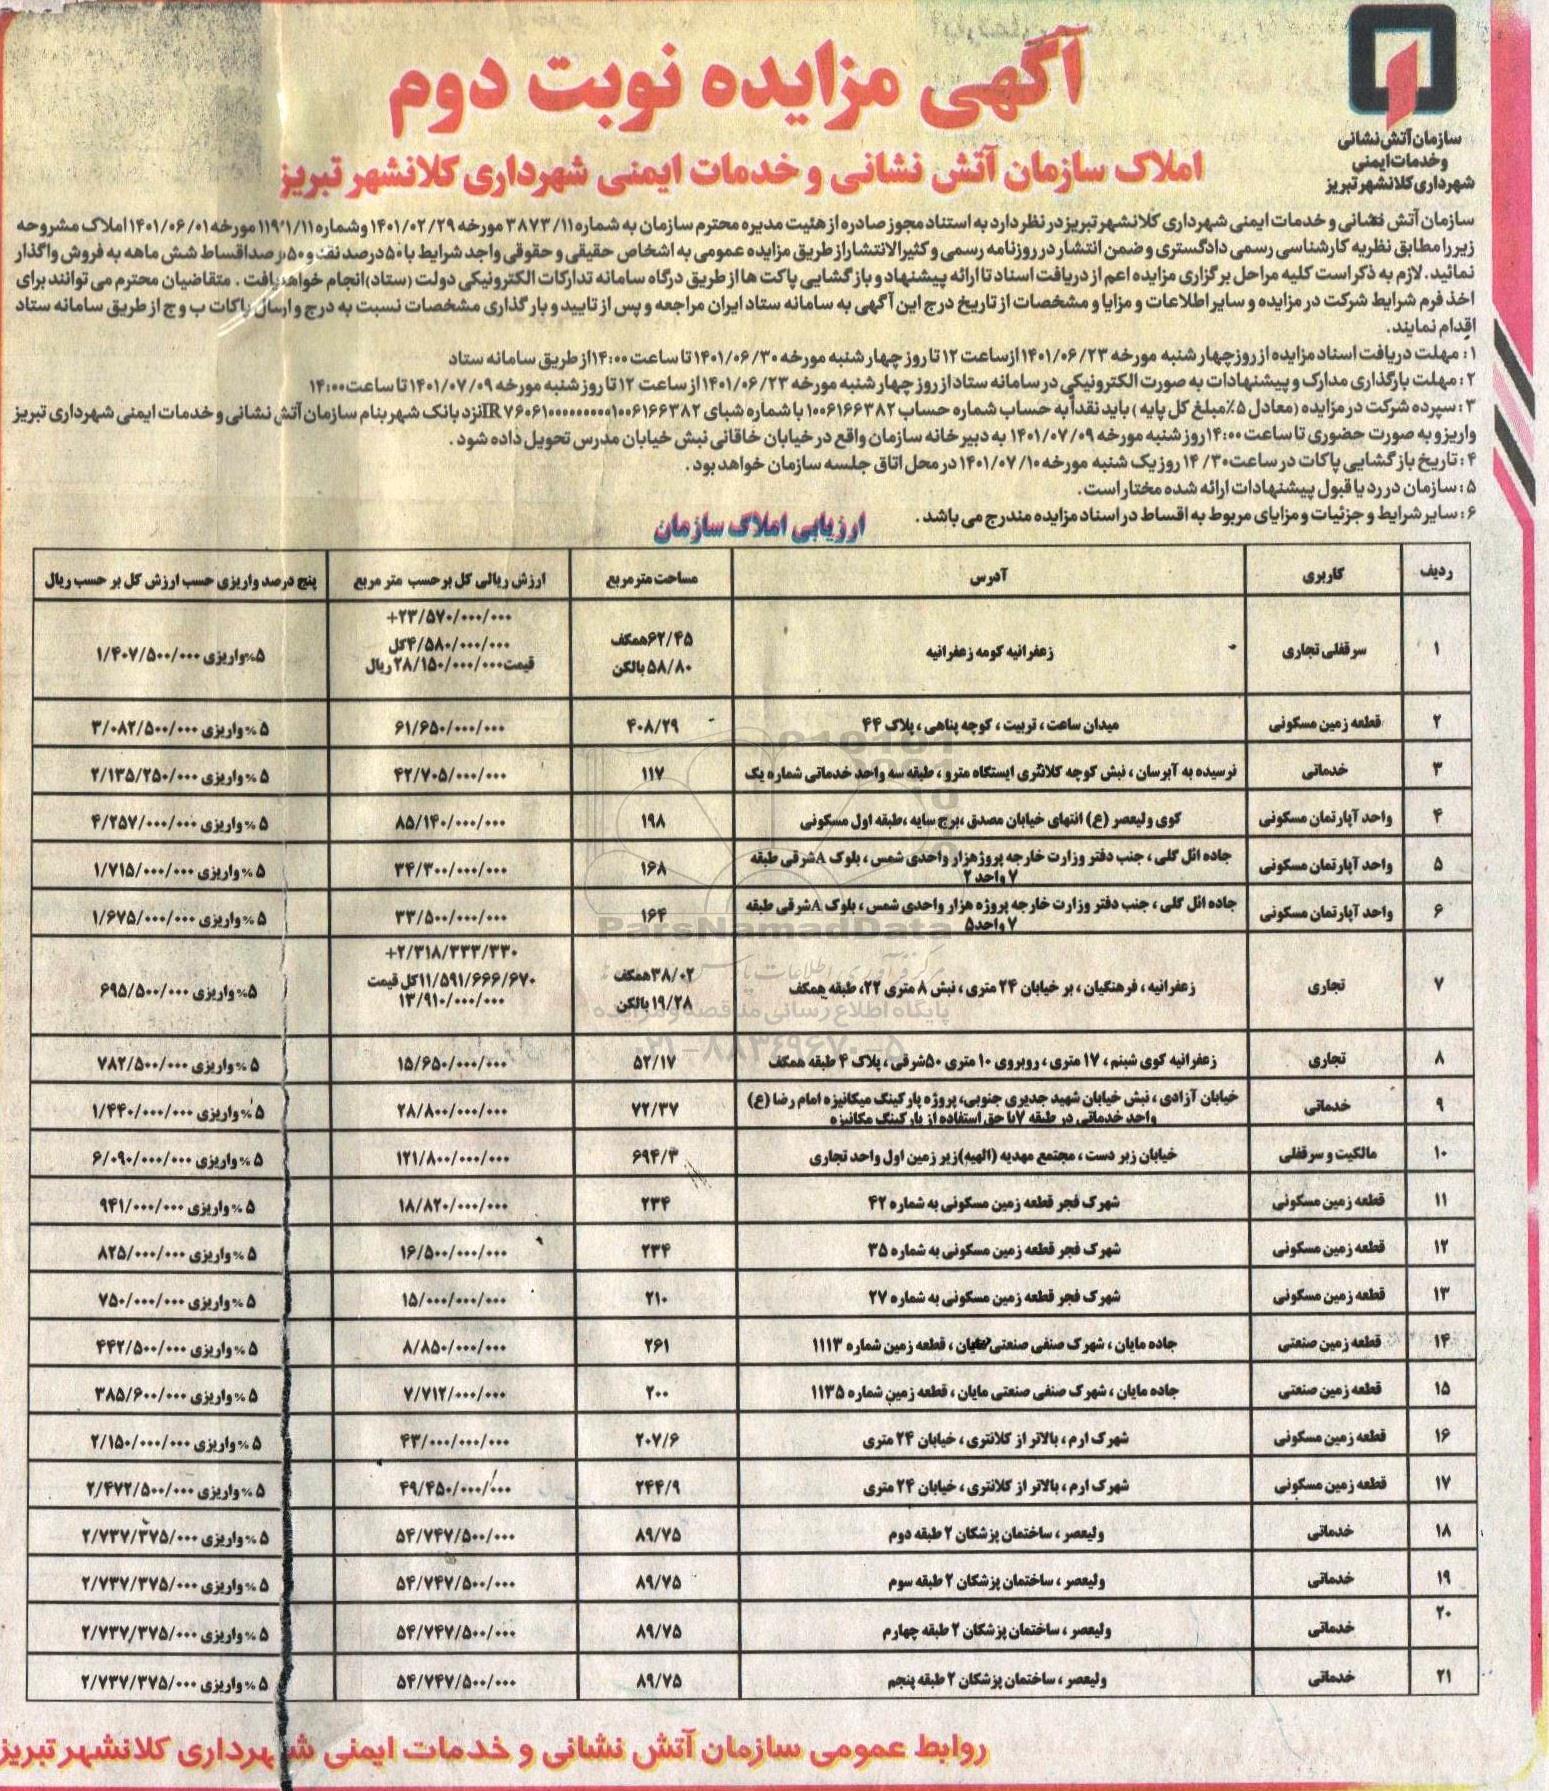 سازمان آتش نشانی
و خدمات ایمنی
شهرداری کلانشهر تبریز
آگهی مزایده نوبت دوم
املاک سازمان آتش نشانی و خدمات ایمنی شهرداری کلانشهر تبریز
سازمان آتش نشانی و خدمات ایمنی شهرداری کلانشهر تبریز در نظر دارد به استناد مجوز صادره از هئیت مدیره محترم سازمان به شماره ۳۸۷۳/۱۱ مورخه ۱۴۰۱/۰۲/۲۹ و شماره ۱۱۹۲۱/۱۱ مورخه ۱۴۰۱/۰۶/۰۱ املاک مشروحه
زیر را مطابق نظریه کارشناسی رسمی دادگستری و ضمن انتشار در روزنامه رسمی و کثیرالانتشار از طریق مزایده عمومی به اشخاص حقیقی و حقوقی واجد شرایط با ۵۰ درصد نقد و ۵۰ درصد اقساط شش ماهه به فروش واگذار
نمائید. لازم به ذکر است کلیه مراحل برگزاری مزایده اعم از دریافت اسناد تا ارائه پیشنهاد و بازگشایی پاکت ها از طریق درگاه سامانه تدارکات الکترونیکی دولت (ستاد) انجام خواهد یافت . متقاضیان محترم می توانند برای
اخذ فرم شرایط شرکت در مزایده و سایر اطلاعات و مزایا و مشخصات از تاریخ درج این آگهی به سامانه ستاد ایران مراجعه و پس از تایید و بارگذاری مشخصات نسبت به درج و ارسال پاکات ب و ج از طریق سامانه ستاد
اقدام نمایند.
۱: مهلت دریافت اسناد مزایده از روز چهارشنبه مورخه ۱۴۰۱/۰۶/۲۳ از ساعت ۱۲ تا روز چهارشنبه مورخه ۱۴۰۱/۰۶/۳۰ تا ساعت ۱۴:۰۰ از طریق سامانه ستاد
۲: مهلت بارگذاری مدارک و پیشنهادات به صورت الکترونیکی در سامانه ستاد از روز چهارشنبه مورخه ۱۴۰۱/۰۶/۲۳ از ساعت ۱۲ تا روز شنبه مورخه ۱۴۰۱/۰۷/۰۹ تا ساعت ۱۴:۰۰
۳: سپرده شرکت در مزایده (معادل ۵٪ مبلغ کل پایه) باید نقداً به حساب شماره حساب ۱۰۰۶۱۶۶۳۸۲ با شماره شبای IR ۷۶۰۶۱۰۰۰۰۰۰۰۰۰۱۰۰۶۱۶۶۳۸۲ نزد بانک شهر بنام سازمان آتش نشانی و خدمات ایمنی شهرداری تبریز
واریز و به صورت حضوری تا ساعت ۱۴:۰۰ روز شنبه مورخه ۱۴۰۱/۰۷/۰۹ به دبیرخانه سازمان واقع در خیابان خاقانی نبش خیابان مدرس تحویل داده شود .
۴: تاریخ بازگشایی پاکات در ساعت ۱۴/۳۰ روز یک شنبه مورخه ۱۴۰۱/۰۷/۱۰ در محل اتاق جلسه سازمان خواهد بود .
۵: سازمان در رد یا قبول پیشنهادات ارائه شده مختار است .
۶: سایر شرایط و جزئیات و مزایای مربوط به اقساط در اسناد مزایده مندرج می باشد .
ارزیابی املاک سازمان
ردیف کاربری آدرس مساحت مترمربع ارزش ریالی کل برحسب متر مربع پنج درصد واریزی حسب ارزش کل بر حسب ریال
۱ سرقفلی تجاری زعفرانیه کومه زعفرانیه ۶۲/۴۵ همکف ۵۸/۸۰ بالکن ۲۳/۵۷۰/۰۰۰/۰۰۰+ ۴/۵۸۰/۰۰۰/۰۰۰ کل قیمت ۲۸/۱۵۰/۰۰۰/۰۰۰ ریال ۵٪ واریزی ۱/۴۰۷/۵۰۰/۰۰۰
۲ قطعه زمین مسکونی میدان ساعت ، تربیت ، کوچه پناهی ، پلاک ۴۴ ۴۰۸/۲۹ ۶۱/۶۵۰/۰۰۰/۰۰۰ ۵ ٪ واریزی ۳/۰۸۲/۵۰۰/۰۰۰
۳ خدماتی نرسیده به آبرسان ، نبش کوچه کلانتری ایستگاه مترو ، طبقه سه واحد خدماتی شماره یک ۱۱۷ ۴۲/۷۰۵/۰۰۰/۰۰۰ ۵ ٪ واریزی ۲/۱۳۵/۲۵۰/۰۰۰
۴ واحد آپارتمان مسکونی کوی ولیعصر (ع) انتهای خیابان مصدق ،برج سایه ،طبقه اول مسکونی ۱۹۸ ۸۵/۱۴۰/۰۰۰/۰۰۰ ۵ ٪ واریزی ۴/۲۵۷/۰۰۰/۰۰۰
۵ واحد آپارتمان مسکونی جاده ائل گلی ، جنب دفتر وزارت خارجه پروژ هزار واحدی شمس ، بلوک A شرقی طبقه ۷ واحد ۲ ۱۶۸ ۳۴/۳۰۰/۰۰۰/۰۰۰ ۵ ٪ واریزی ۱/۷۱۵/۰۰۰/۰۰۰
۶ واحد آپارتمان مسکونی جاده ائل گلی ، جنب دفتر وزارت خارجه پروژه هزار واحدی شمس ، بلوک A شرقی طبقه ۷ واحد ۵ ۱۶۴ ۳۳/۵۰۰/۰۰۰/۰۰۰ ۵ ٪ واریزی ۱/۶۷۵/۰۰۰/۰۰۰
۷ تجاری زعفرانیه ، فرهنگیان ، بر خیابان ۲۴ متری ، نبش ۸ متری ۲۲، طبقه همکف ۳۸/۰۲ همکف ۱۹/۲۸ بالکن ۲/۳۱۸/۳۳۳/۳۳۰+ ۱۱/۵۹۱/۶۶۶/۶۷۰ کل قیمت ۱۳/۹۱۰/۰۰۰/۰۰۰ ۵٪ واریزی ۶۹۵/۵۰۰/۰۰۰
۸ تجاری زعفرانیه کوی شبنم ، ۱۷ متری ، روبروی ۱۰ متری ۵۰ شرقی ، پلاک ۴ طبقه همکف ۵۲/۱۷ ۱۵/۶۵۰/۰۰۰/۰۰۰ ۵ ٪ واریزی ۷۸۲/۵۰۰/۰۰۰
۹ خدماتی خیابان آزادی ، نبش خیابان شهید جدیری جنوبی، پروژه پارکینگ میکانیزه امام رضا (ع) واحد خدماتی در طبقه ۷ با حق استفاده از پارکینگ مکانیزه ۷۲/۳۷ ۲۸/۸۰۰/۰۰۰/۰۰۰ ۵ ٪ واریزی ۱/۴۴۰/۰۰۰/۰۰۰
۱۰ مالکیت و سرقفلی خیابان زبر دست ، مجتمع مهدیه (الهیه) زیر زمین اول واحد تجاری ۶۹۴/۳ ۱۲۱/۸۰۰/۰۰۰/۰۰۰ ۵ ٪ واریزی ۶/۰۹۰/۰۰۰/۰۰۰
۱۱ قطعه زمین مسکونی شهرک فجر قطعه زمین مسکونی به شماره ۴۲ ۲۳۴ ۱۸/۸۲۰/۰۰۰/۰۰۰ ۵ ٪ واریزی ۹۴۱/۰۰۰/۰۰۰
۱۲ قطعه زمین مسکونی شهرک فجر قطعه زمین مسکونی به شماره ۳۵ ۲۳۴ ۱۶/۵۰۰/۰۰۰/۰۰۰ ۵ ٪ واریزی ۸۲۵/۰۰۰/۰۰۰
۱۳ قطعه زمین مسکونی شهرک فجر قطعه زمین مسکونی به شماره ۲۷ ۲۱۰ ۱۵/۰۰۰/۰۰۰/۰۰۰ ۵ ٪ واریزی ۷۵۰/۰۰۰/۰۰۰
۱۴ قطعه زمین صنعتی جاده مایان ، شهرک صنفی صنعتی مایان ، قطعه زمین شماره ۱۱۱۳ ۲۶۱ ۸/۸۵۰/۰۰۰/۰۰۰ ۵ ٪ واریزی ۴۴۲/۵۰۰/۰۰۰
۱۵ قطعه زمین صنعتی جاده مایان ، شهرک صنفی صنعتی مایان ، قطعه زمین شماره ۱۱۳۵ ۲۰۰ ۷/۷۱۲/۰۰۰/۰۰۰ ۵ ٪ واریزی ۳۸۵/۶۰۰/۰۰۰
۱۶ قطعه زمین مسکونی شهرک ارم ، بالاتر از کلانتری ، خیابان ۲۴ متری ۲۰۷/۶ ۴۳/۰۰۰/۰۰۰/۰۰۰ ۵ ٪ واریزی ۲/۱۵۰/۰۰۰/۰۰۰
۱۷ قطعه زمین مسکونی شهرک ارم ، بالاتر از کلانتری ، خیابان ۲۴ متری ۲۴۴/۹ ۴۹/۴۵۰/۰۰۰/۰۰۰ ۵ ٪ واریزی ۲/۴۷۲/۵۰۰/۰۰۰
۱۸ خدماتی ولیعصر ، ساختمان پزشکان ۲ طبقه دوم ۸۹/۷۵ ۵۴/۷۴۷/۵۰۰/۰۰۰ ۵ ٪ واریزی ۲/۷۳۷/۳۷۵/۰۰۰
۱۹ خدماتی ولیعصر ، ساختمان پزشکان ۲ طبقه سوم ۸۹/۷۵ ۵۴/۷۴۷/۵۰۰/۰۰۰ ۵ ٪ واریزی ۲/۷۳۷/۳۷۵/۰۰۰
۲۰ خدماتی ولیعصر ، ساختمان پزشکان ۲ طبقه چهارم ۸۹/۷۵ ۵۴/۷۴۷/۵۰۰/۰۰۰ ۵ ٪ واریزی ۲/۷۳۷/۳۷۵/۰۰۰
۲۱ خدماتی ولیعصر ، ساختمان پزشکان ۲ طبقه پنجم ۸۹/۷۵ ۵۴/۷۴۷/۵۰۰/۰۰۰ ۵ ٪ واریزی ۲/۷۳۷/۳۷۵/۰۰۰
ParsNamadData
پایگاه اطلاع رسانی مناقصه و مزایده
۰۲۱-۸۸۳۴۹۶۷۰-۵
روابط عمومی سازمان آتش نشانی و خدمات ایمنی شهرداری کلانشهر تبریز